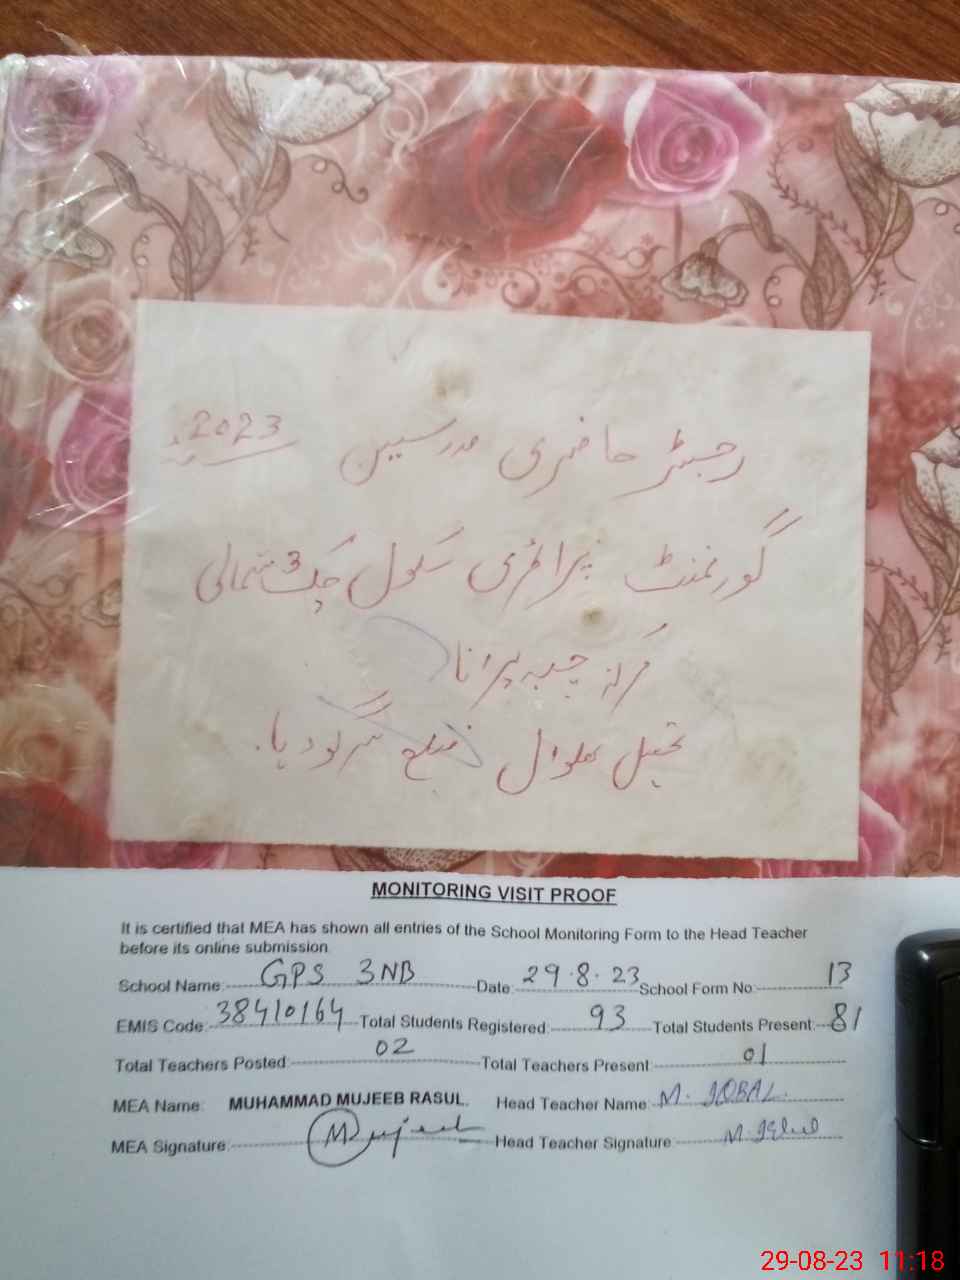 رجسٹر حاضری مدرسین 2023ء
گورنمنٹ پرائمری سکول چک 3 شمالی
مرکز چبہ پرانا
تحصیل بھلوال ضلع سرگودہا.
MONITORING VISIT PROOF
It is certified that MEA has shown all entries of the School Monitoring Form to the Head Teacher
before its online submission.
School Name: GPS 3NB Date: 29.8.23 School Form No: 13
EMIS Code: 38410164 Total Students Registered: 93 Total Students Present: 81
Total Teachers Posted: 02 Total Teachers Present: 01
MEA Name: MUHAMMAD MUJEEB RASUL. Head Teacher Name: M. IQBAL
MEA Signature: Mujeeb Head Teacher Signature M. Iqbal
29-08-23 11:18